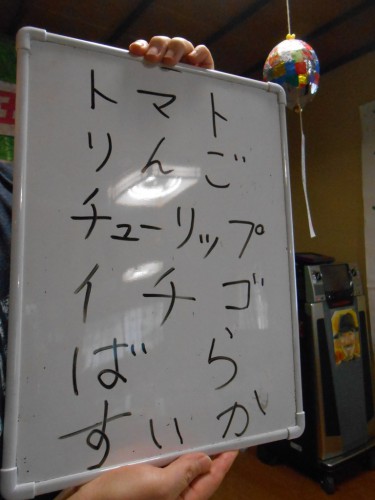 トマト
りんご
チューリップ
イチゴ
ばら
すいか